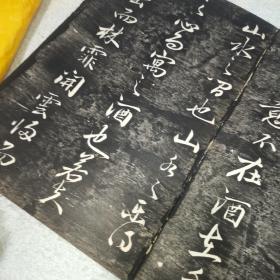 意不在酒在
山水之間也山水之樂得
之心而寓之酒也若夫
出而林霏開雲歸而